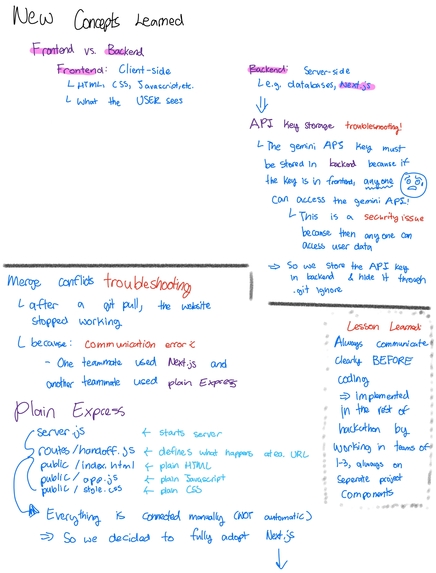 New Concepts Learned
Frontend vs. Backend
Frontend: Client-side
HTML, CSS, Javascript, etc.
What the USER sees
Backend: Server-side
e.g. databases, Next.js
API Key storage troubleshooting!
The gemini API key must
be stored in backend because if
the key is in frontend, anyone
can access the gemini API!
This is a security issue
because then anyone can
access user data
⇒ So we store the API key
in backend & hide it through
.git ignore
Merge conflicts troubleshooting
after a git pull, the website
stopped working.
because: communication error :(
- One teammate used Next.js and
another teammate used plain Express
Plain Express
server.js ← starts server
routes/handoff.js ← defines what happens at ea. URL
public/index.html ← plain HTML
public/app.js ← plain Javascript
public/style.css ← plain CSS
Everything is connected manually (NOT automatic)
⇒ So we decided to fully adopt Next.js
Lesson Learned
Always communicate
clearly BEFORE
coding
⇒ Implemented
in the rest of
hackathon by
working in teams of
1-3, always on
seperate project
components